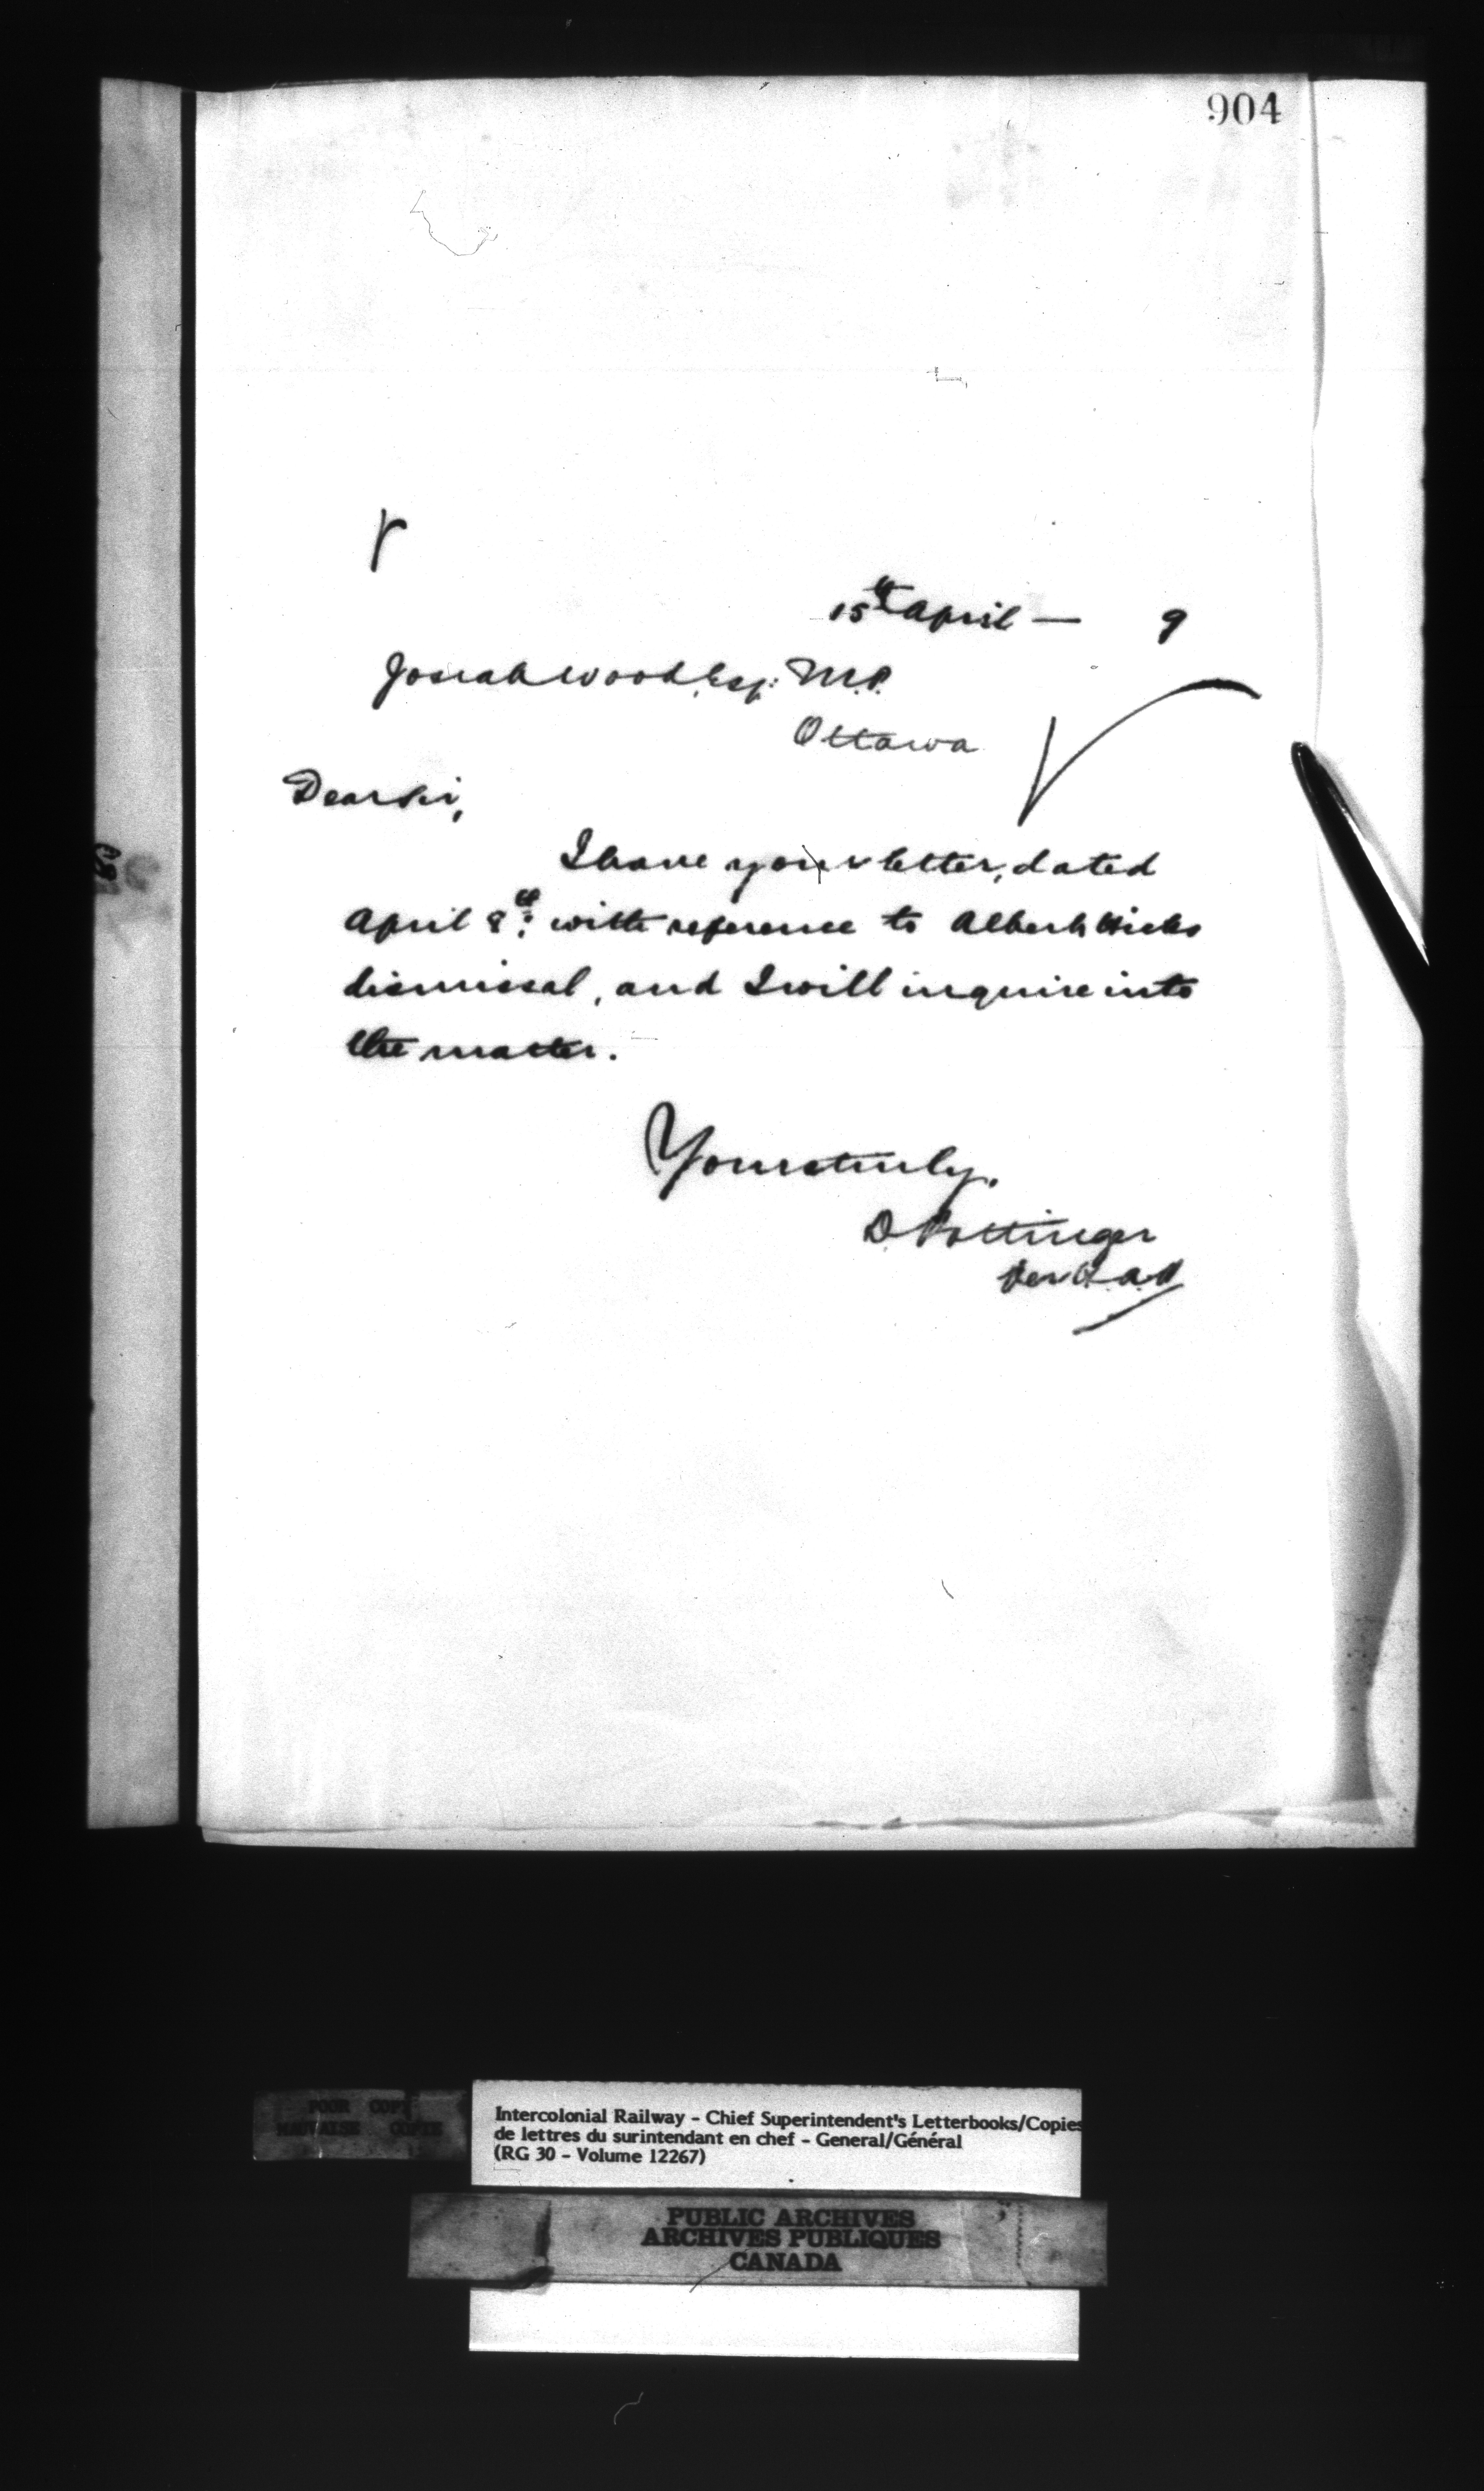 904
15th April — 9
Josiah Wood, Esq: M.P.
Ottawa
Dear Sir,
I have your letter, dated
April 8th: with reference to Albert Hicks
dismissal, and I will inquire into
the matter.
Yours truly,
D. Pottinger
Per
POOR COPY
MAUVAISE COPIE
Intercolonial Railway - Chief Superintendent's Letterbooks/Copies
de lettres du surintendant en chef - General/Général
(RG 30 - Volume 12267)
PUBLIC ARCHIVES
ARCHIVES PUBLIQUES
CANADA